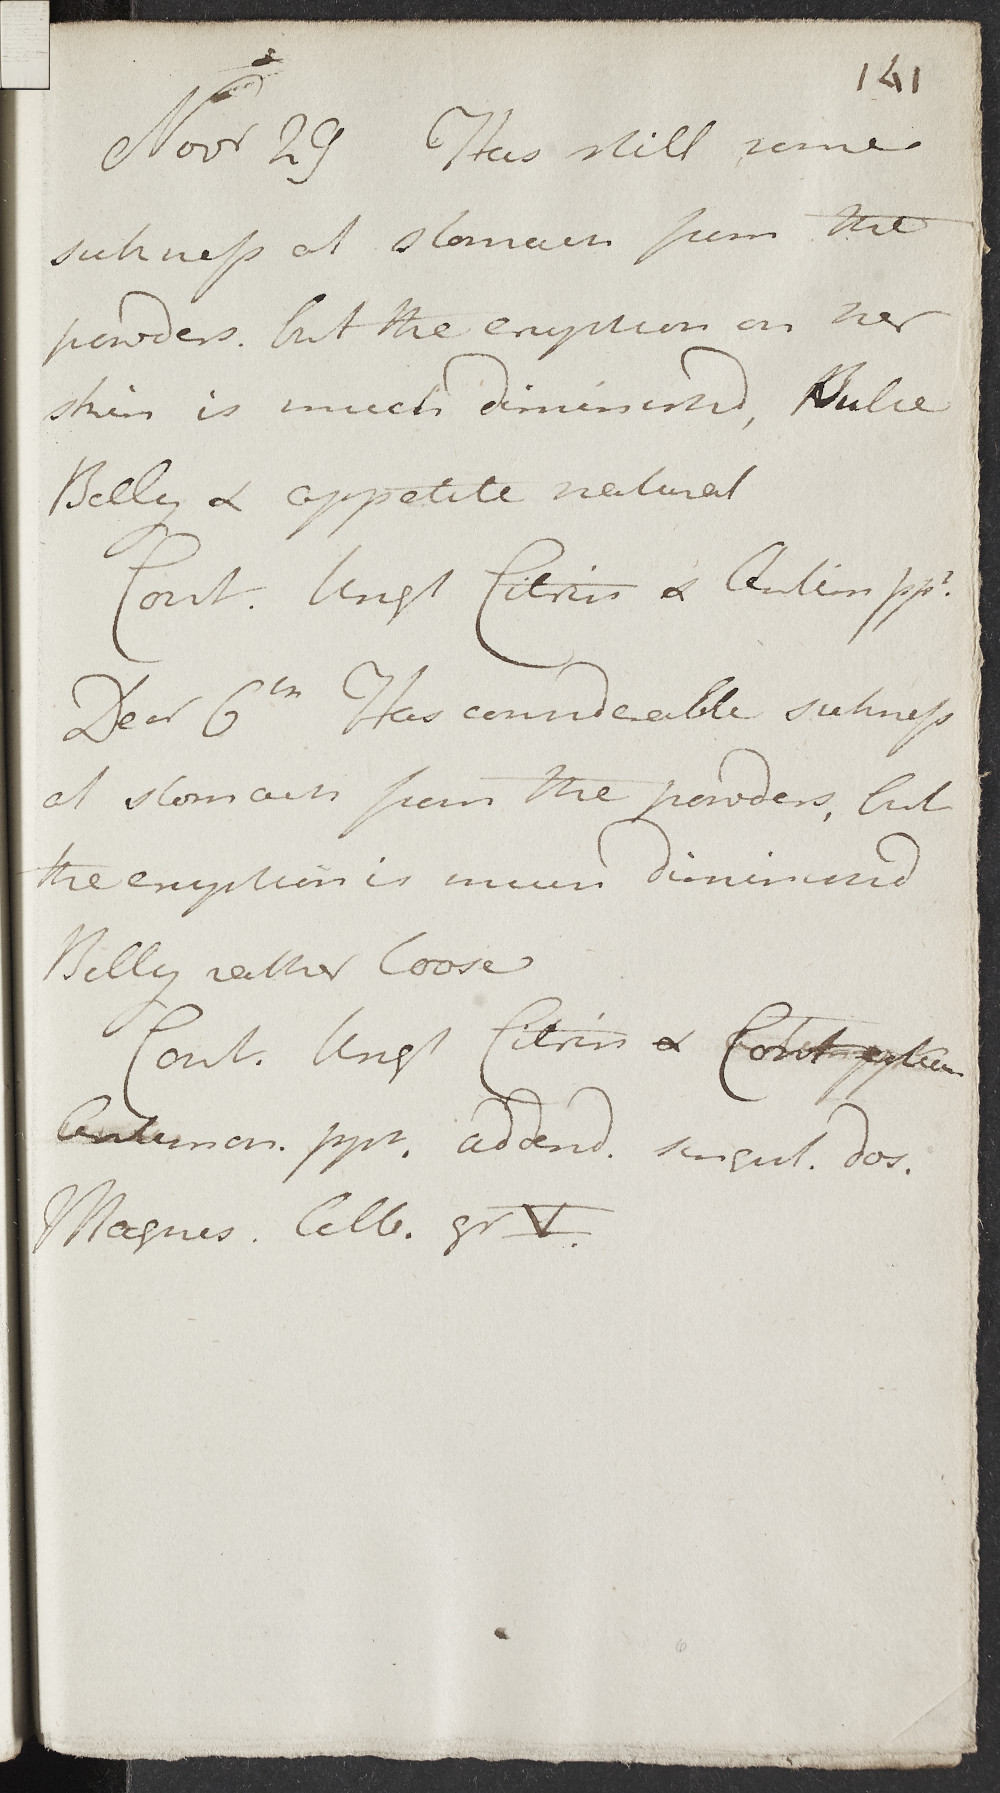 141
Novr 29 Has still some
sickness at stomach from the
powders. but the eruption on her
skin is much diminished, Pulse
Belly & appetite natural
Cont. Ungt Citrin & Antim ppt.
Decr 6th Has considerable sickness
at stomach from the powders, but
the eruption is much diminished
Belly rather loose
Cont. Ungt Citrin & Cont
Antimon. ppt. addend. singul. dos.
Magnes. Alb. gr V.